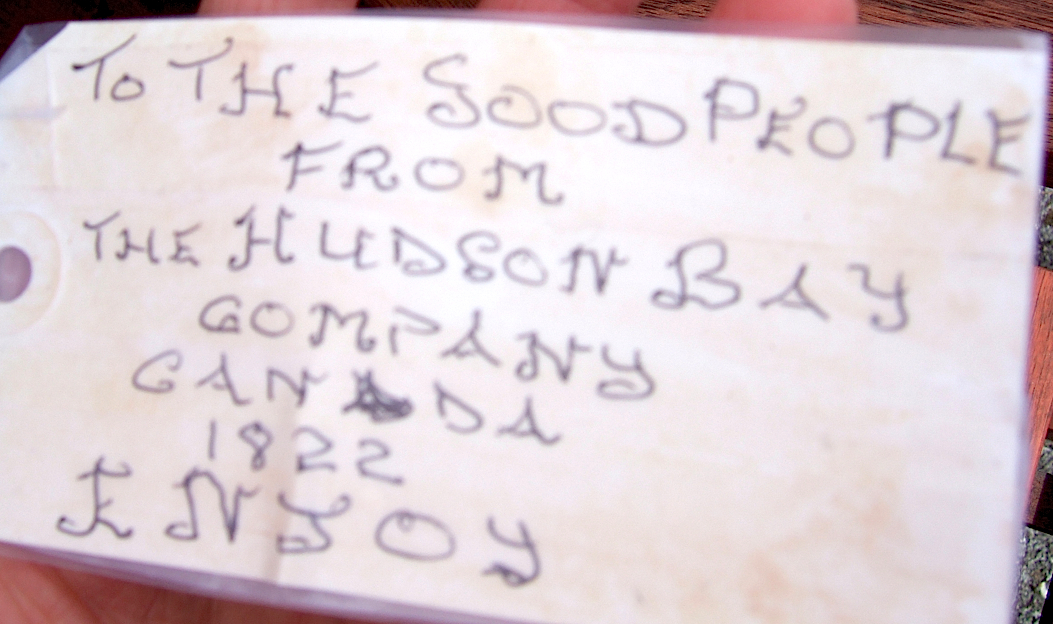 To THE GOOD PEOPLE
FROM
THE HUDSON BAY
COMPANY
CANADA
1822
ENJOY